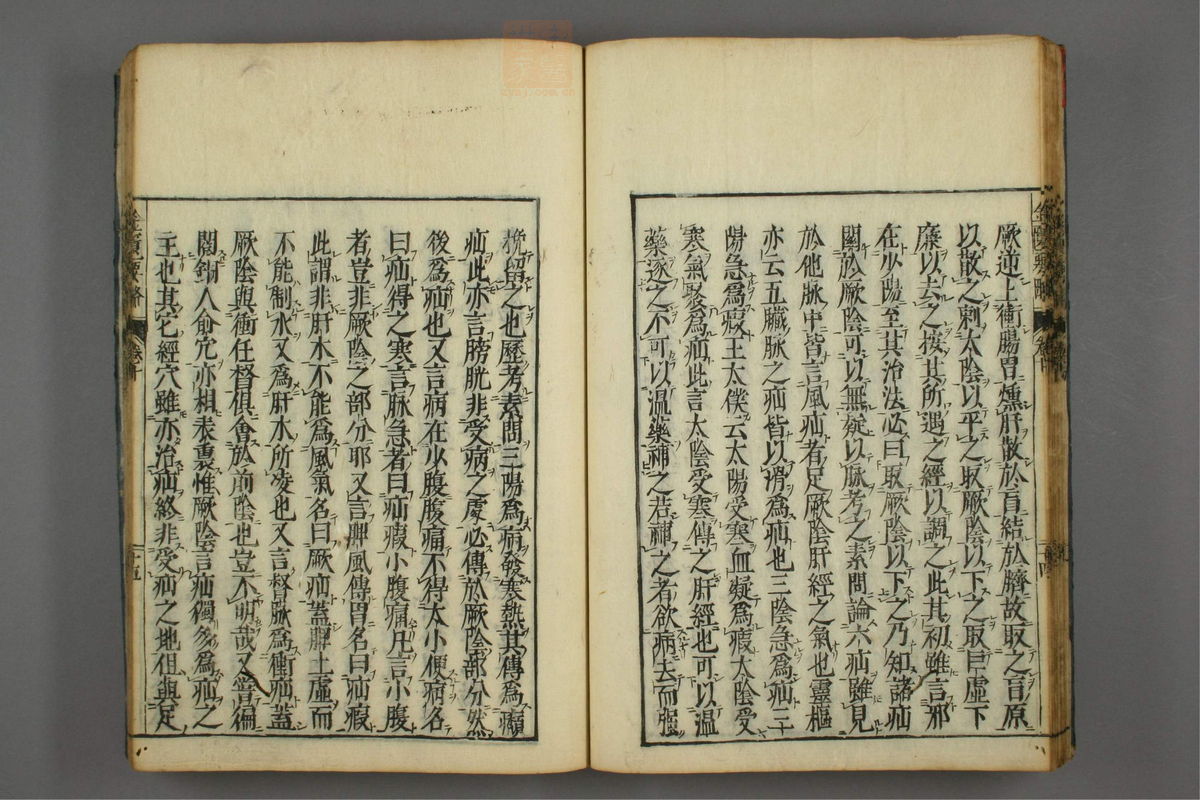 厥逆上衝腸胃燻肝散於肓結於臍故取之肓原
以散之刺太陰以平之取厥陰以下之取巨虛下
廉以去之按其所過之經以調之此其初雖言邪
在少陽至其治法必曰取厥陰以下之乃知諸疝
關於厥陰可以無疑以脉考之素問論六疝雖見
於他脉中皆言風疝者足厥陰肝經之氣也靈樞
亦云五臟脉之疝皆以滑為疝也三陰急為疝三
陽急為瘕王太僕云太陽受寒血凝為瘕太陰受
寒氣聚為疝此言太陰受寒傳之肝經也可以溫
藥逐之不可以溫藥補之若補之者欲病去而強
挽留之也歷考素問三陽為病發寒熱其傳為㿗
疝此亦言膀胱非受病之處必傳於厥陰部分然
後為疝也又言病在少腹腹痛不得大小便病名
曰疝得之寒言脉急者曰疝瘕小腹痛凡言小腹
者豈非厥陰之部分耶又言脾風傳胃名曰疝瘕
此謂非肝木不能為風氣名曰厥疝蓋脾土虛而
不能制水又為肝木所凌也又言督脉為衝疝蓋
厥陰與衝任督俱會於前陰也豈不明哉又嘗徧
閱銅人俞穴亦相表裏惟厥陰言疝獨多為疝之
主也其它經穴雖亦治疝終非受疝之地但與足
金匱要略
金匱要略
十五